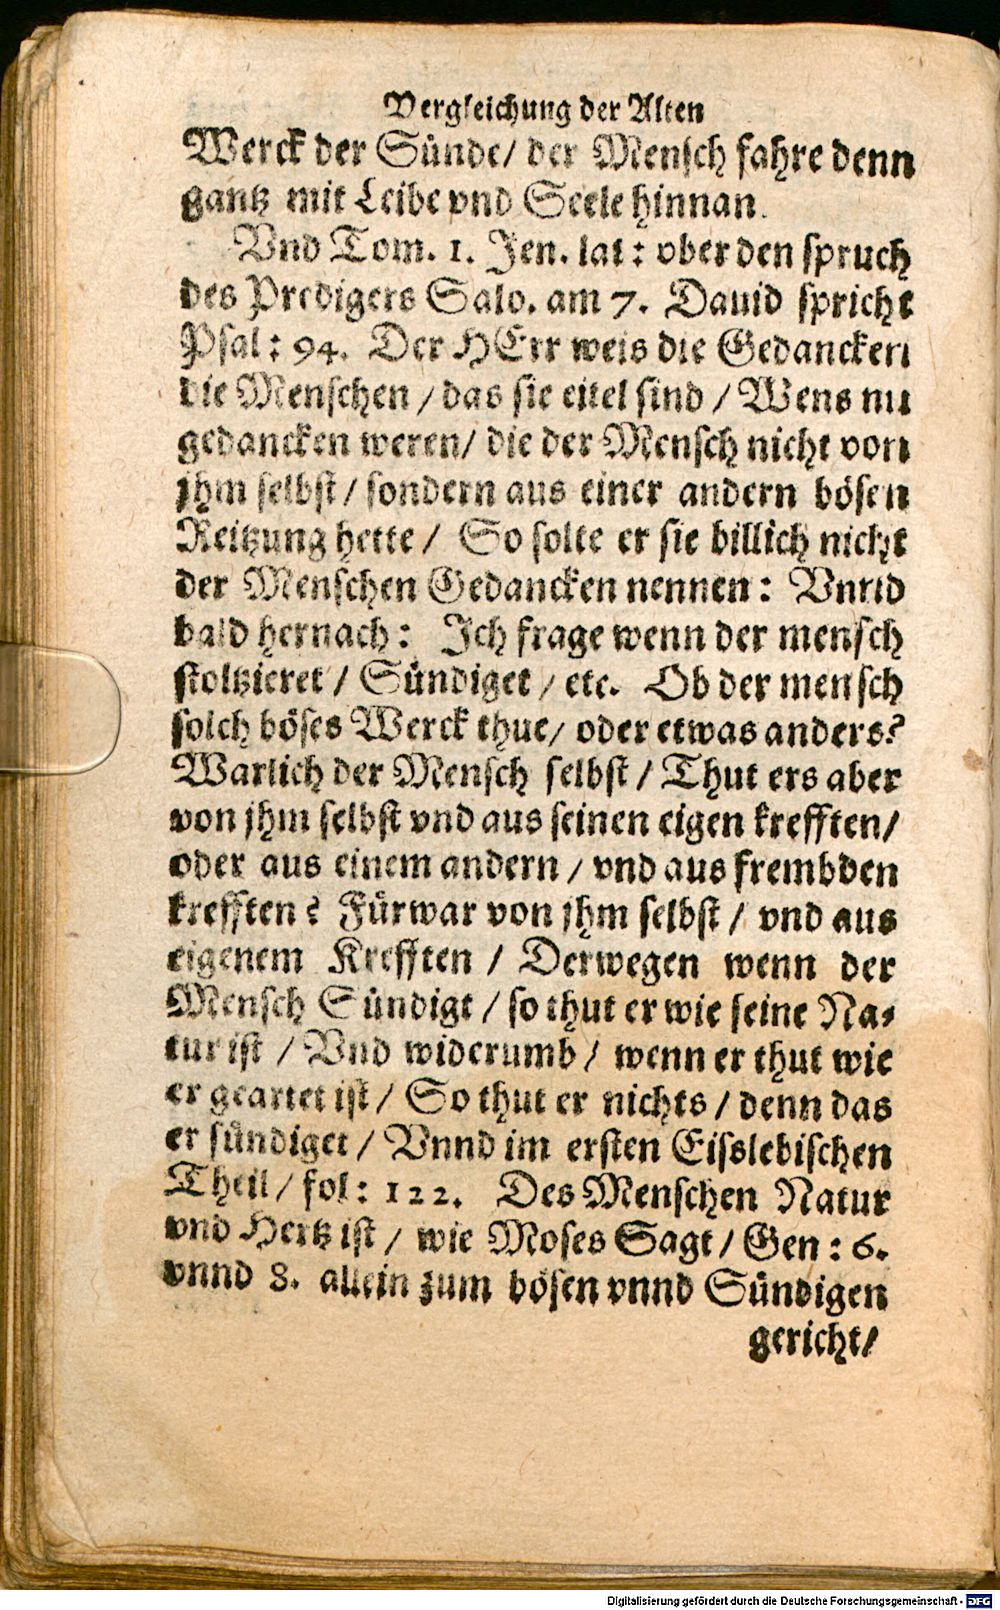 Vergleichung der Alten
Werck der Sünde/ der Mensch fahre denn
gantz mit Leibe vnd Seele hinnan.
Vnd Tom. 1. Jen. lat: vber den spruch
des Predigers Salo. am 7. Dauid spricht
Psal: 94. Der HErr weis die Gedancken
die Menschen / das sie eitel sind / Wens nu
gedancken weren/ die der Mensch nicht von
jhm selbst / sondern aus einer andern bösen
Reitzung hette / So solte er sie billich nicht
der Menschen Gedancken nennen: Vnnd
bald hernach: Ich frage wenn der mensch
stoltzieret / Sündiget / etc. Ob der mensch
solch böses Werck thue/ oder etwas anders?
Warlich der Mensch selbst / Thut ers aber
von jhm selbst vnd aus seinen eigen krefften/
oder aus einem andern / vnd aus frembden
krefften? Fürwar von jhm selbst / vnd aus
eigenem Krefften / Derwegen wenn der
Mensch Sündigt / so thut er wie seine Na-
tur ist / Vnd widerumb / wenn er thut wie
er geartet ist / So thut er nichts / denn das
er sündiget / Vnnd im ersten Eisslebischen
Theil / fol: 122. Des Menschen Natur
vnd Hertz ist / wie Moses Sagt / Gen: 6.
vnnd 8. allein zum bösen vnnd Sündigen
gericht/
Digitalisierung gefördert durch die Deutsche Forschungsgemeinschaft - DFG